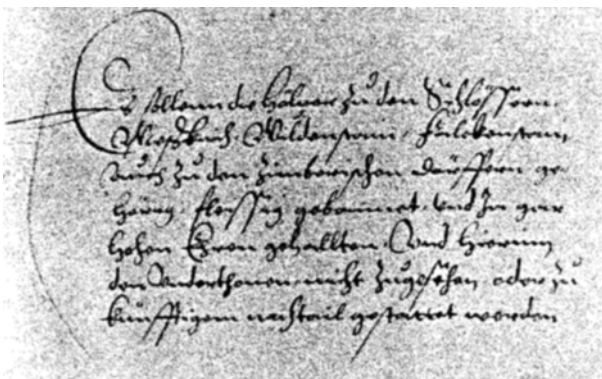 Es sollenn die Hölzer zu den Schlössern
Mösskirch, Wildenstain, Falckenstain,
Auch zu den zimberischen dörffern ge-
hörig, fleissig gebannet, und In gar
hohen Eeren gehallten, Und hierinn
den Underthonen nicht zugesehen oder zu
künfftigem nachtail gestattet werden